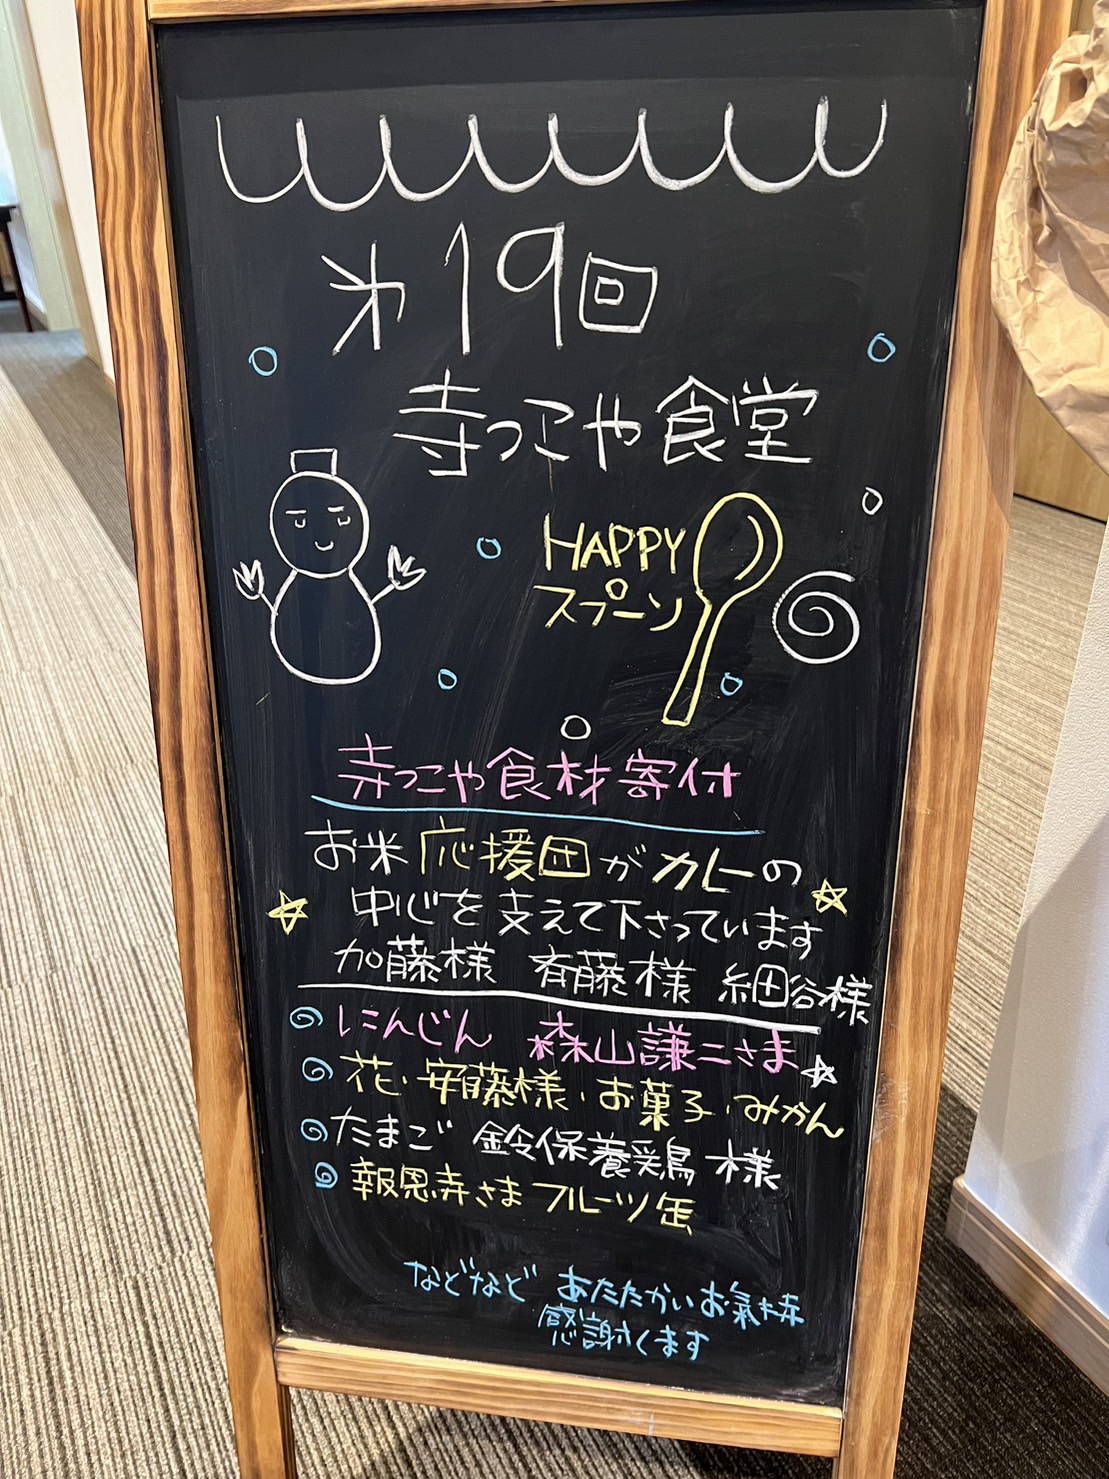 第19回
寺っこや食堂
HAPPY
スプーン
寺っこや食材寄付
お米応援団がカレーの
中心を支えて下さっています
加藤様 斉藤様 細谷様
にんじん 森山謙二さま
花・安藤様・お菓子・みかん
たまご 鈴保養鶏様
報恩寺さまフルーツ缶
などなど あたたかいお氣持
感謝します